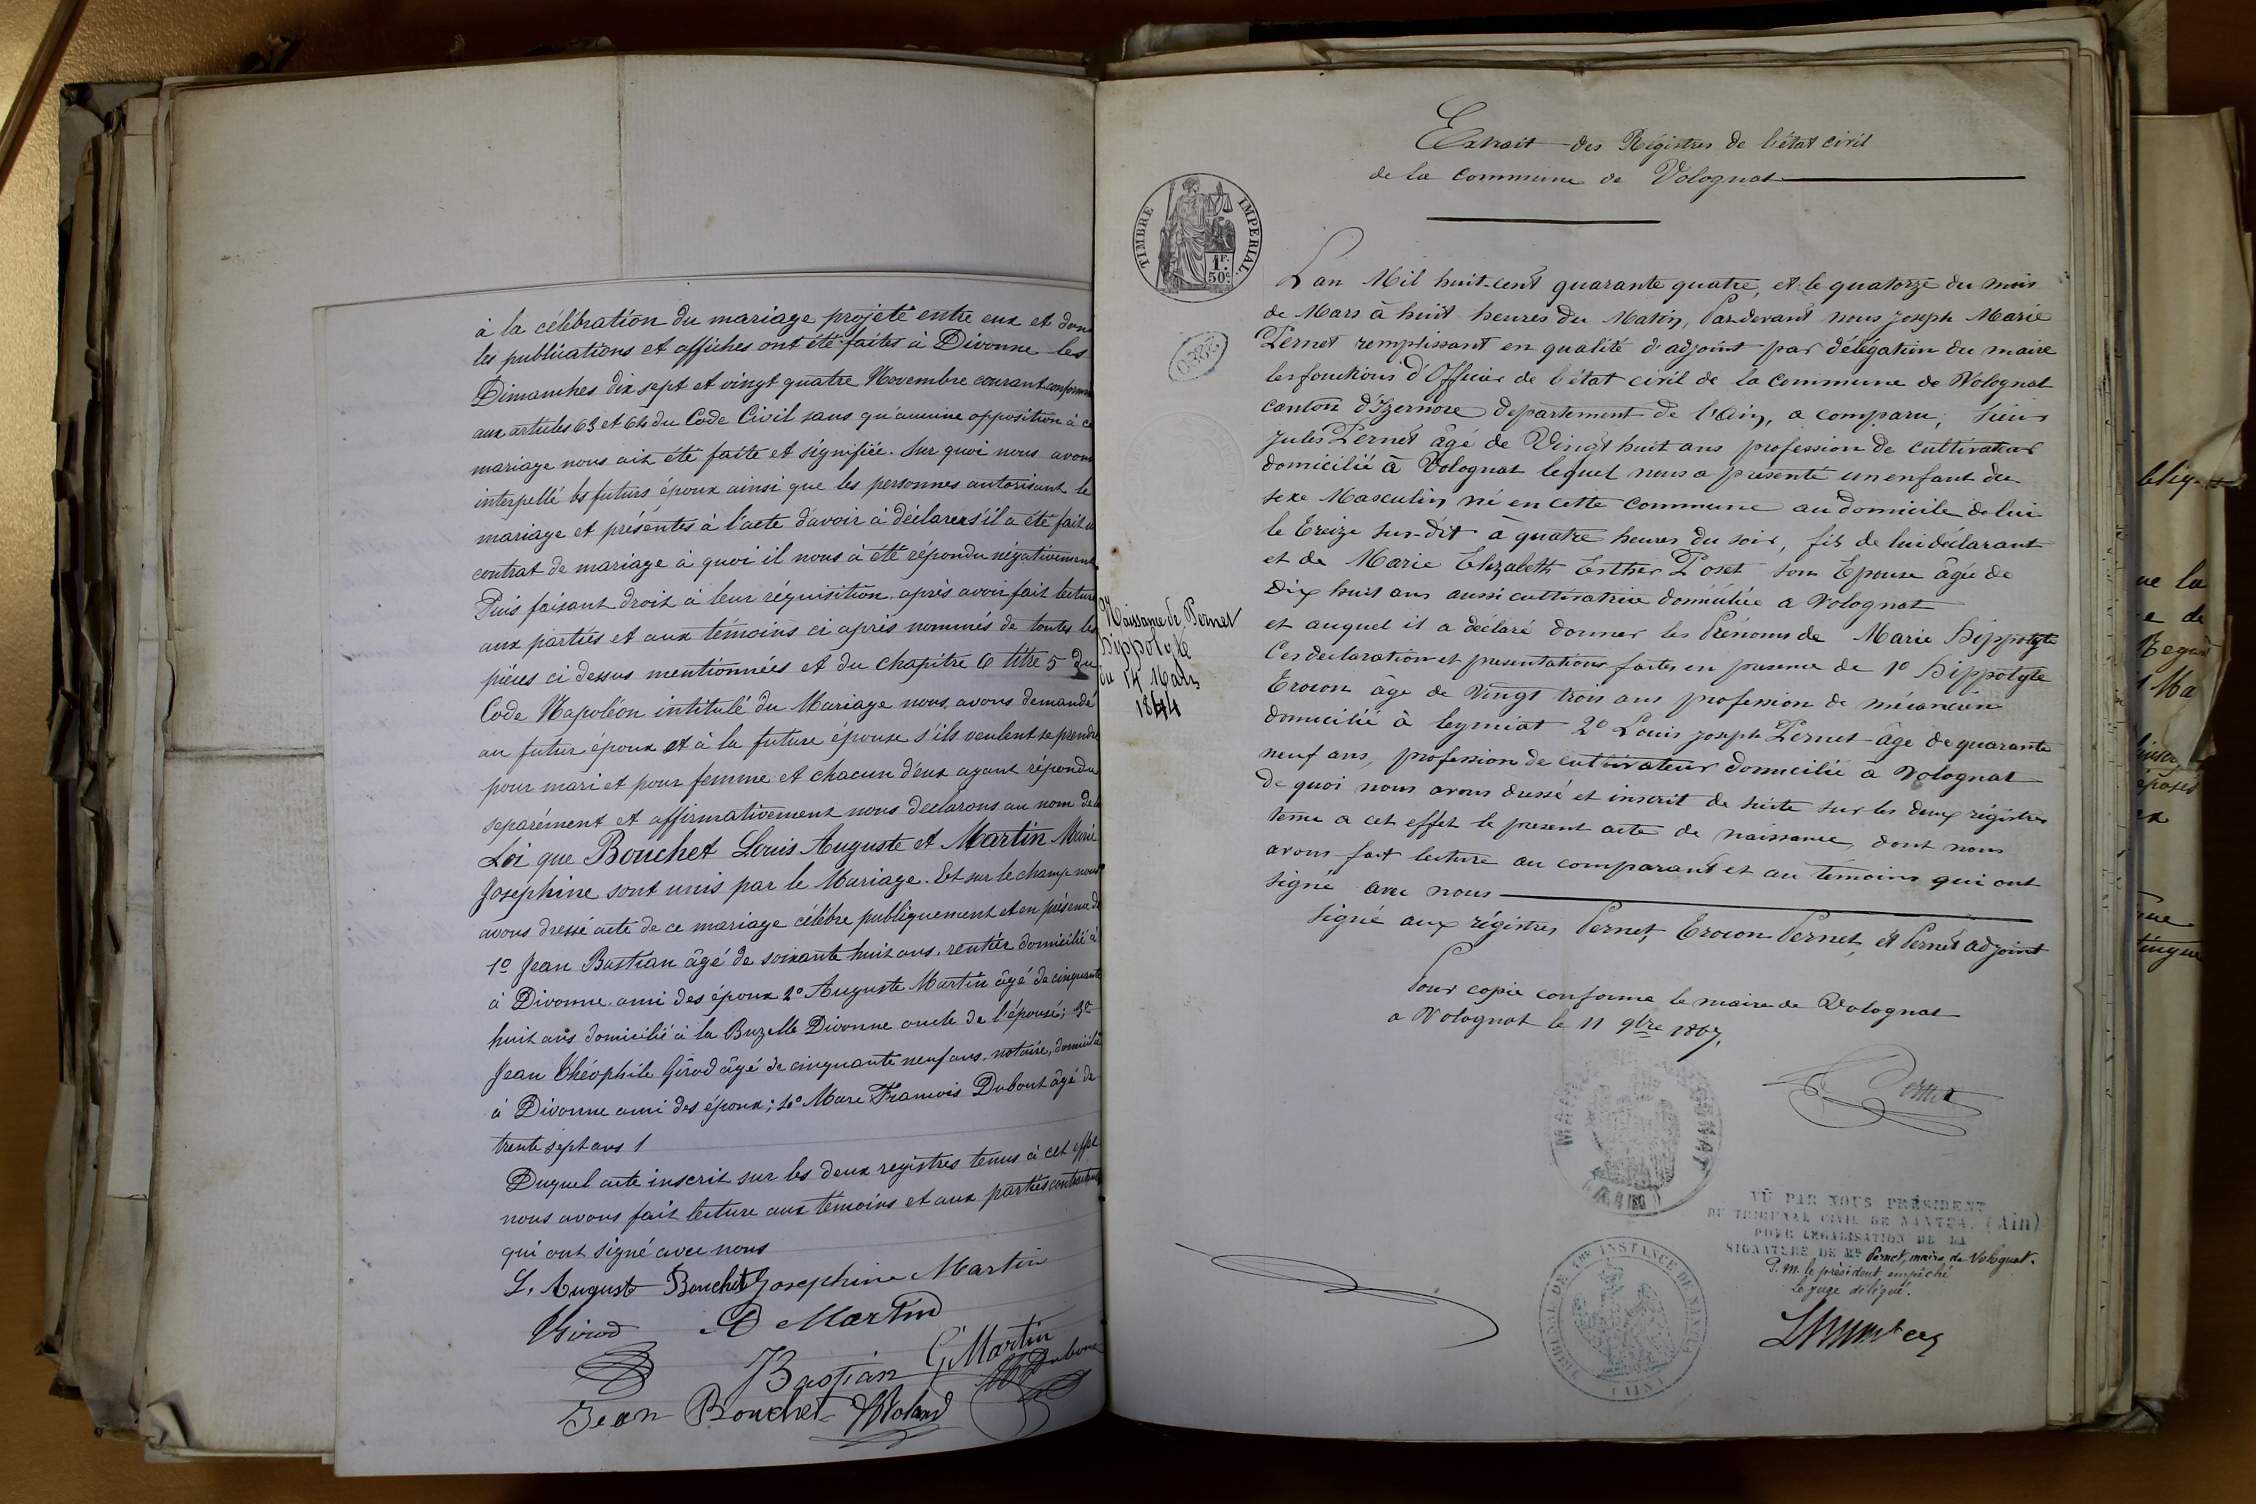 à la célébration du mariage projeté entre eux et dont
les publications et affiches ont été faites à Divonne les
Dimanches dix sept et vingt quatre Novembre courant conformé
aux articles 63 et 64 du Code Civil sans qu'aucune opposition à ce
mariage nous ait été faite et signifiée. Sur quoi nous avons
interpellé les futurs époux ainsi que les personnes autorisant le
mariage et présentes à l'acte d'avoir à déclarer s'il a été fait un
contrat de mariage à quoi il nous à été répondu négativement
Puis faisant droit à leur réquisition, après avoir fait lecture
aux parties et aux témoins ci après nommés de toutes les
pièces ci dessus mentionnées et du chapitre 6 titre 5 du
Code Napoléon intitulé du Mariage nous avons demandé
au futur époux et à la future épouse s'ils veulent se prendre
pour mari et pour femme et chacun d'eux ayant répondu
separément et affirmativement nous declarons au nom de la
Loi que Bouchet Louis Auguste et Martin Marie
Josephine sont unis par le Mariage. Et sur le champ nous
avons dressé acte de ce mariage célébré publiquement et en présence de
1º Jean Bastian âgé de soixante huit ans, rentier domicilié à
à Divonne ami des époux 2º Auguste Martin âgé de cinquante
huit ans domicilié à la Buzelle Divonne oncle de l'épouse; 3º
Jean Théophile Girod âgé de cinquante neuf ans, notaire, domicilié
à Divonne ami des époux; 4º Marc François Dubout âgé de
trente sept ans
Duquel acte inscrit sur les deux registres tenus à cet effet
nous avons fait lecture aux témoins et aux parties contractantes
qui ont signé avec nous
L. August Bouchet Josephine Martin
Girod A Martin
J Bastian G. Martin
Jean Bouchet
Extrait des Régistres de l'état civil
de la commune de Volognat
TIMBRE IMPERIAL
1F. 50c.
L'an Mil huit-cent quarante quatre, et le quatorze du mois
de Mars à huit heures du Matin, Par-devant nous Joseph Marie
Pernet remplissant en qualité d'adjoint par délégation du maire
les fonctions d'Officier de l'état civil de la commune de Volognat
canton d'Izernore departement de l'Ain, a comparu, Sieur
Jules Pernet âgé de Vingt huit ans profession de cultivateur
domicilié à Volognat lequel nous a présenté un enfant du
sexe Masculin, né en cette commune au domicile de lui
le treize sus-dit à quatre heures du soir, fils de lui déclarant
et de Marie Elizabeth Esther Poset son Epouse âgée de
Dix huit ans aussi cultivatrice domiciliée a Volognat
et auquel il a déclaré donner les Prénoms de Marie hippolyte
Ces declaration et presentations faites en presence de 1º hippolyte
Erocon âge de Vingt trois ans profession de mécanicien
domicilié à leymiat 2º Louis joseph Pernet âge de quarante
neuf ans, profession de cultivateur domicilié à Volognat
de quoi nous avons dressé et inscrit de suite sur les deux régistres
tenu a cet effet le present acte de naissance, dont nous
avons fait lecture au comparant et au témoins qui ont
signé avec nous
Signé aux régistres Pernet, Erocon Pernet, et Pernet adjoint
Naissance de Pernet
hippolyte
du 14 Mars
1844
Pour copie conforme le maire de Volognat
a Volognat le 11 9bre 1867.
Pernet
VÛ PAR NOUS PRÉSIDENT
DU TRIBUNAL CIVIL DE NANTUA, (Ain)
POUR LÉGALISATION DE LA
SIGNATURE DE Mr Pernet, maire de Volognat.
P. M. le président, empêché
Le juge délégué.
TRIBUNAL DE 1ère INSTANCE DE NANTUA
(AIN)